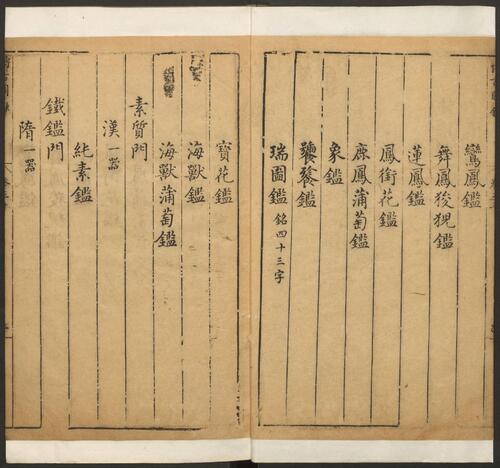 鸞鳳鑑
舞鳳狻猊鑑
蓮鳳鑑
鳳銜花鑑
鹿鳳蒲萄鑑
象鑑
饕餮鑑
瑞圖鑑 銘四十三字
寶花鑑
海獸鑑
海獸蒲萄鑑
素質門
漢一器
純素鑑
鐵鑑門
隋一器